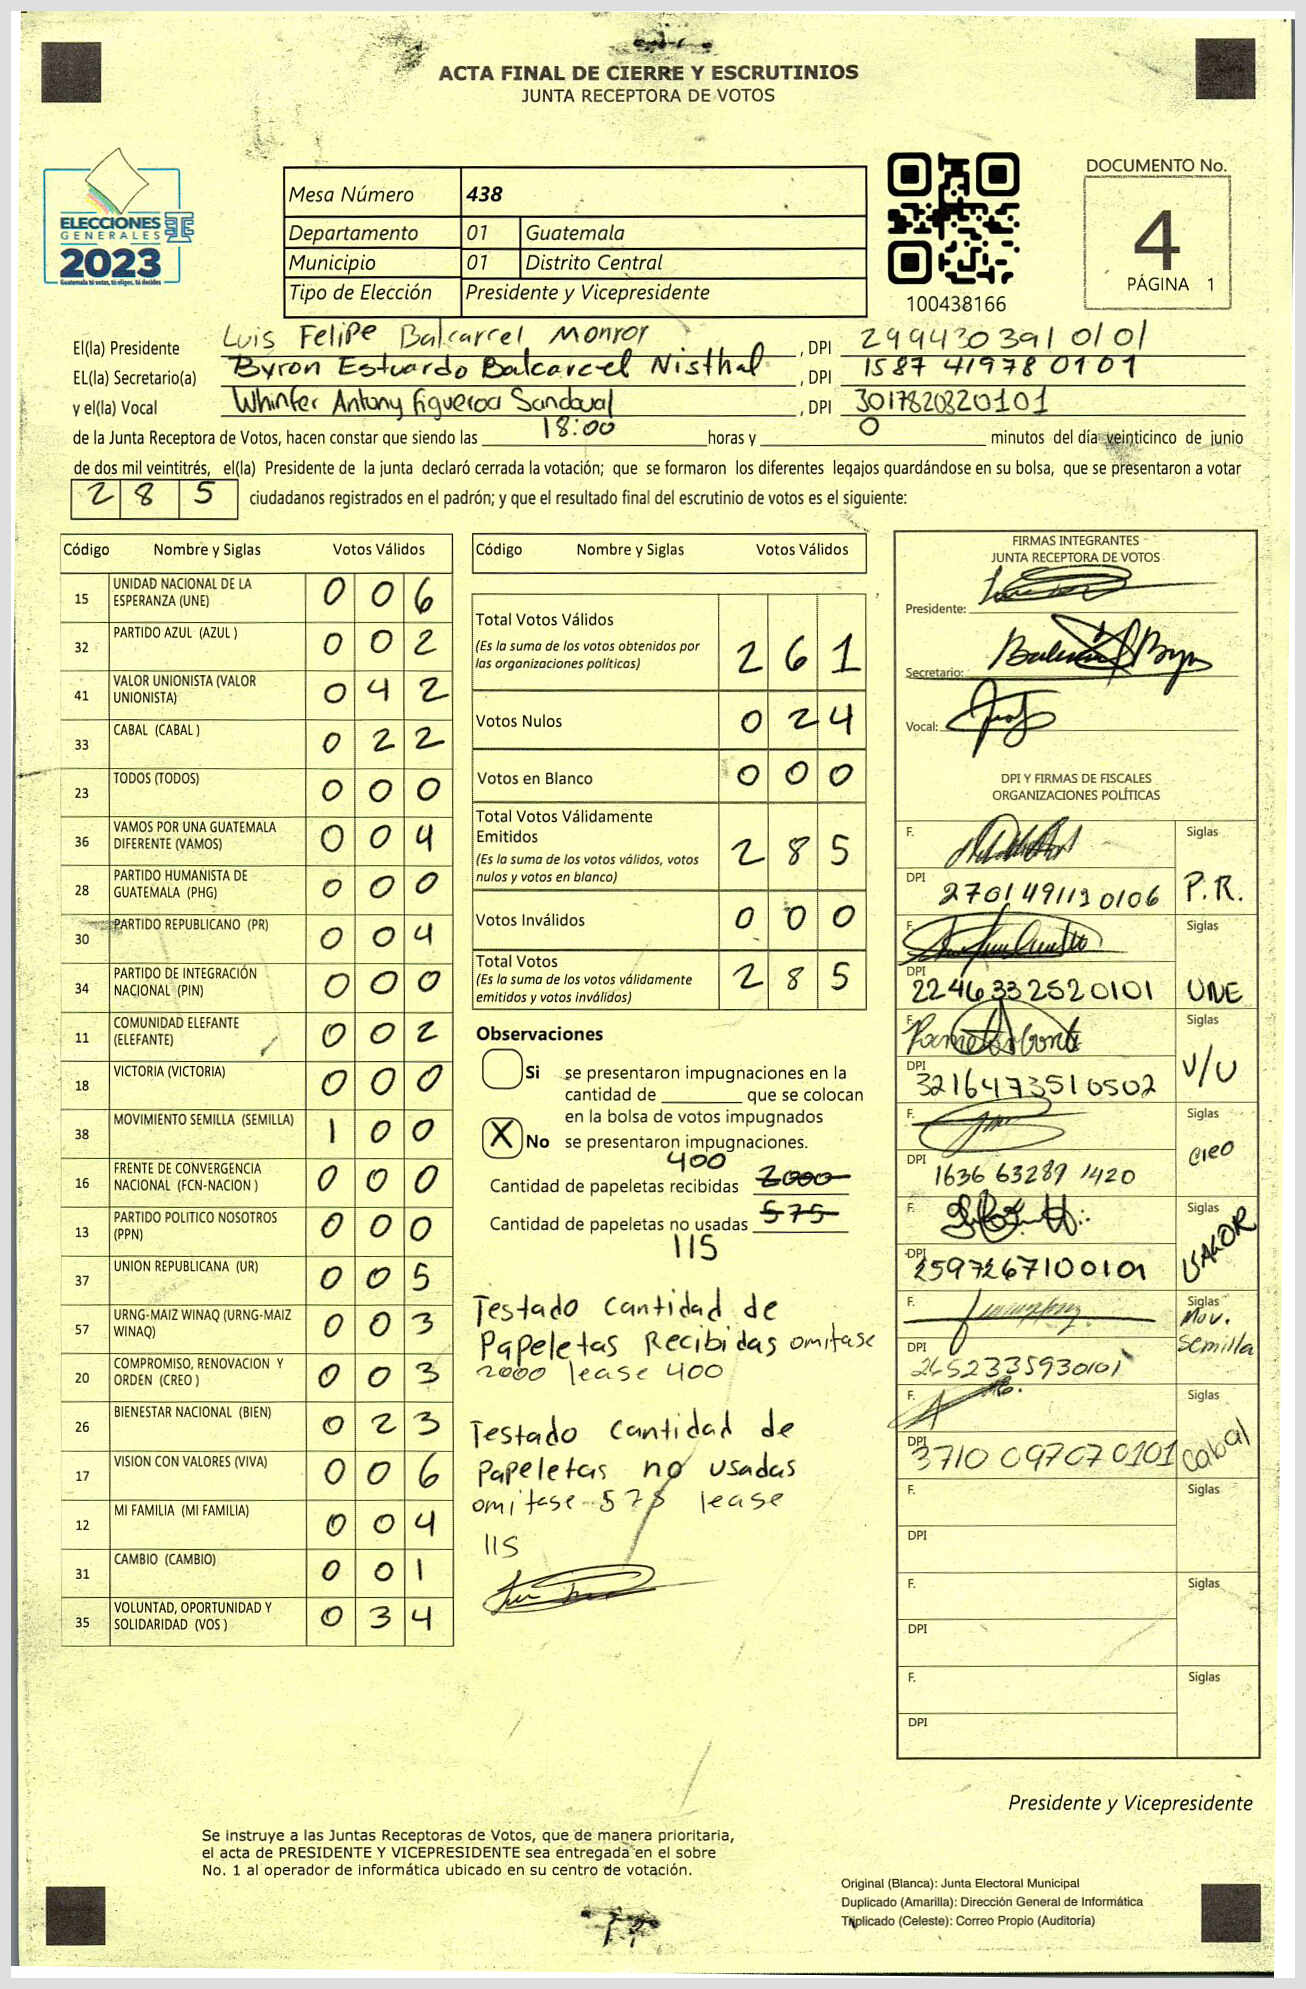 ACTA FINAL DE CIERRE Y ESCRUTINIOS
JUNTA RECEPTORA DE VOTOS
ELECCIONES
GENERALES
2023
Guatemala tú votas, tú eliges, tú decides
Mesa Número 438
Departamento 01 Guatemala
Municipio 01 Distrito Central
Tipo de Elección Presidente y Vicepresidente
100438166
DOCUMENTO No.
4
PÁGINA 1
El(la) Presidente Luis Felipe Balcarcel Monror, DPI 299430391 0101
EL(la) Secretario(a) Byron Estuardo Balcarcel Nisthal, DPI 1587 41978 0101
y el(la) Vocal Whinfer Antony Figueroa Sandoval, DPI 3017820320101
de la Junta Receptora de Votos, hacen constar que siendo las 18:00 horas y 0 minutos del día veinticinco de junio
de dos mil veintitrés, el(la) Presidente de la junta declaró cerrada la votación; que se formaron los diferentes legajos guardándose en su bolsa, que se presentaron a votar
285 ciudadanos registrados en el padrón; y que el resultado final del escrutinio de votos es el siguiente:
Código Nombre y Siglas Votos Válidos
15 UNIDAD NACIONAL DE LA ESPERANZA (UNE) 006
32 PARTIDO AZUL (AZUL ) 002
41 VALOR UNIONISTA (VALOR UNIONISTA) 042
33 CABAL (CABAL ) 022
23 TODOS (TODOS) 000
36 VAMOS POR UNA GUATEMALA DIFERENTE (VAMOS) 004
28 PARTIDO HUMANISTA DE GUATEMALA (PHG) 000
30 PARTIDO REPUBLICANO (PR) 004
34 PARTIDO DE INTEGRACIÓN NACIONAL (PIN) 000
11 COMUNIDAD ELEFANTE (ELEFANTE) 002
18 VICTORIA (VICTORIA) 000
38 MOVIMIENTO SEMILLA (SEMILLA) 100
16 FRENTE DE CONVERGENCIA NACIONAL (FCN-NACION ) 000
13 PARTIDO POLITICO NOSOTROS (PPN) 000
37 UNION REPUBLICANA (UR) 005
57 URNG-MAIZ WINAQ (URNG-MAIZ WINAQ) 003
20 COMPROMISO, RENOVACION Y ORDEN (CREO ) 003
26 BIENESTAR NACIONAL (BIEN) 023
17 VISION CON VALORES (VIVA) 006
12 MI FAMILIA (MI FAMILIA) 004
31 CAMBIO (CAMBIO) 001
35 VOLUNTAD, OPORTUNIDAD Y SOLIDARIDAD (VOS ) 034
Código Nombre y Siglas Votos Válidos
Total Votos Válidos 261
(Es la suma de los votos obtenidos por
las organizaciones políticas)
Votos Nulos 024
Votos en Blanco 000
Total Votos Válidamente
Emitidos 285
(Es la suma de los votos válidos, votos
nulos y votos en blanco)
Votos Inválidos 000
Total Votos 285
(Es la suma de los votos válidamente
emitidos y votos inválidos)
Observaciones
Si se presentaron impugnaciones en la
cantidad de ________ que se colocan
en la bolsa de votos impugnados
X No se presentaron impugnaciones.
400
Cantidad de papeletas recibidas 2000
Cantidad de papeletas no usadas 575
115
Testado cantidad de
Papeletas Recibidas omitase
2000 lease 400
Testado cantidad de
papeletas no usadas
omitase 575 lease
115
FIRMAS INTEGRANTES
JUNTA RECEPTORA DE VOTOS
Presidente:
Secretario:
Vocal:
DPI Y FIRMAS DE FISCALES
ORGANIZACIONES POLÍTICAS
F. Siglas
DPI 270149113 0106 P.R.
F. Siglas
DPI 2246332520101 UNE
F. Siglas
DPI 3216473510502 V/U
F. Siglas
DPI 1636 63289 1420 creo
F. Siglas
DPI 2597267100101 VALOR
F. Siglas
DPI 2652335930101 Mov. Semilla
F. Siglas
DPI 3710 097070101 Cabal
F. Siglas
DPI
F. Siglas
DPI
F. Siglas
DPI
Presidente y Vicepresidente
Se instruye a las Juntas Receptoras de Votos, que de manera prioritaria,
el acta de PRESIDENTE Y VICEPRESIDENTE sea entregada en el sobre
No. 1 al operador de informática ubicado en su centro de votación.
Original (Blanca): Junta Electoral Municipal
Duplicado (Amarilla): Dirección General de Informática
Triplicado (Celeste): Correo Propio (Auditoría)